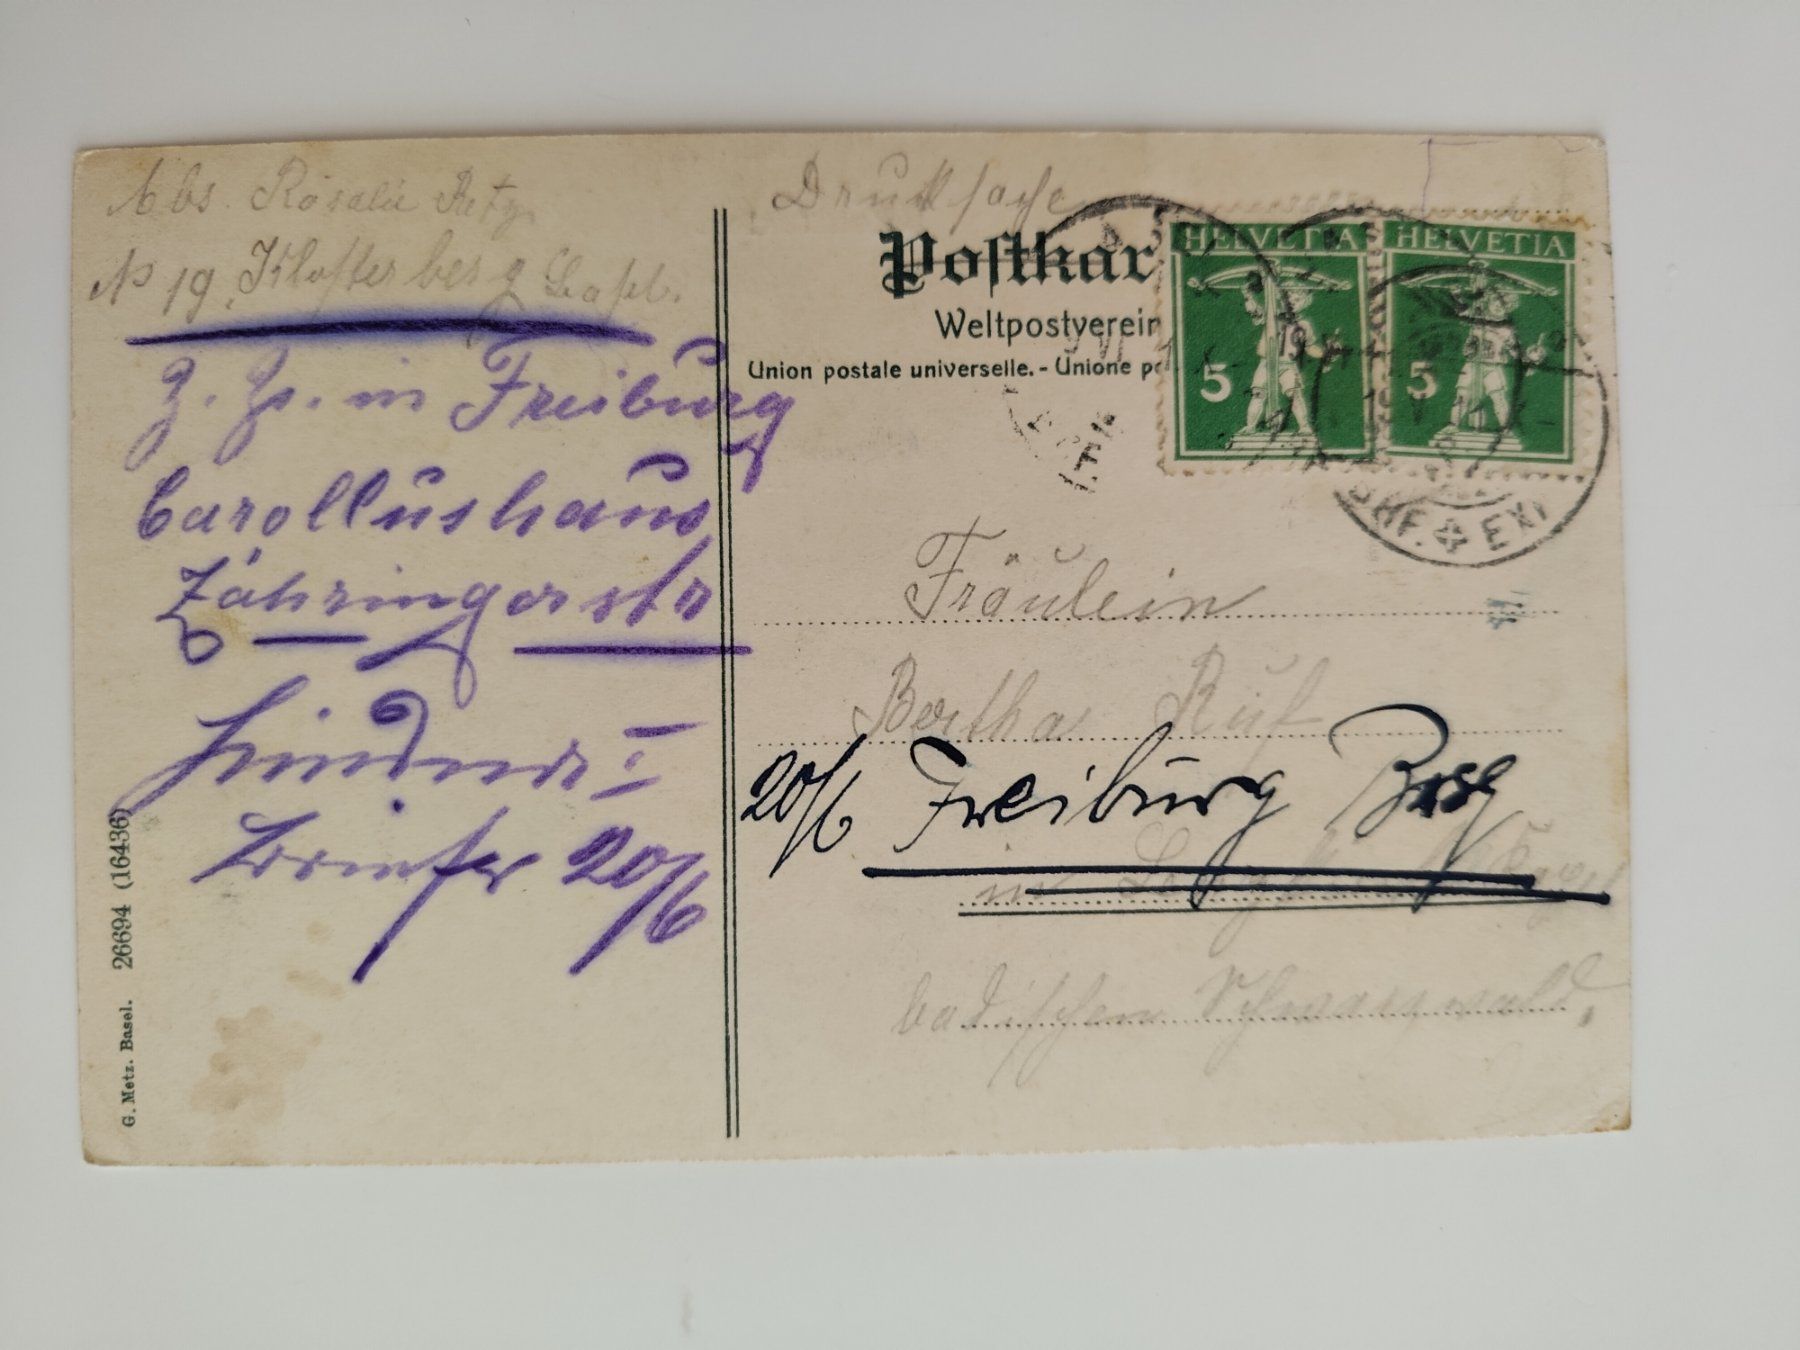 Abs. Rosalie Retz.
No 19. Klosterberg Basel.
Z. Zs. in Freiburg
Carollushaus
Zähringerstr
Briefer 20/6
G. Metz. Basel. 26694 (16436)
Drucksache
Postkar
Weltpostverein
Union postale universelle. - Unione p
HELVETIA
5
HELVETIA
5
BHF. EX
Fräulein
Bertha Ruf
20/6 Freiburg Brsg
in
badischen Schwarzwald.